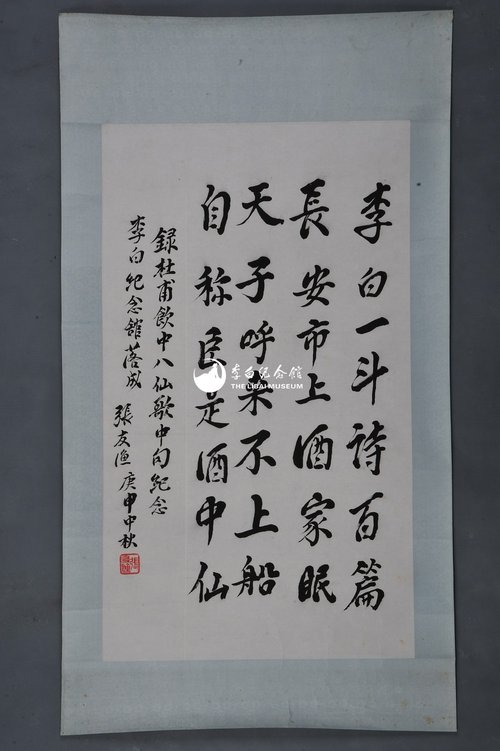 李白一斗诗百篇
長安市上酒家眠
天子呼来不上船
自称臣是酒中仙
録杜甫飲中八仙歌中句纪念
李白纪念館落成
張友渔庚申中秋
李白纪念館
THE LIBAI MUSEUM